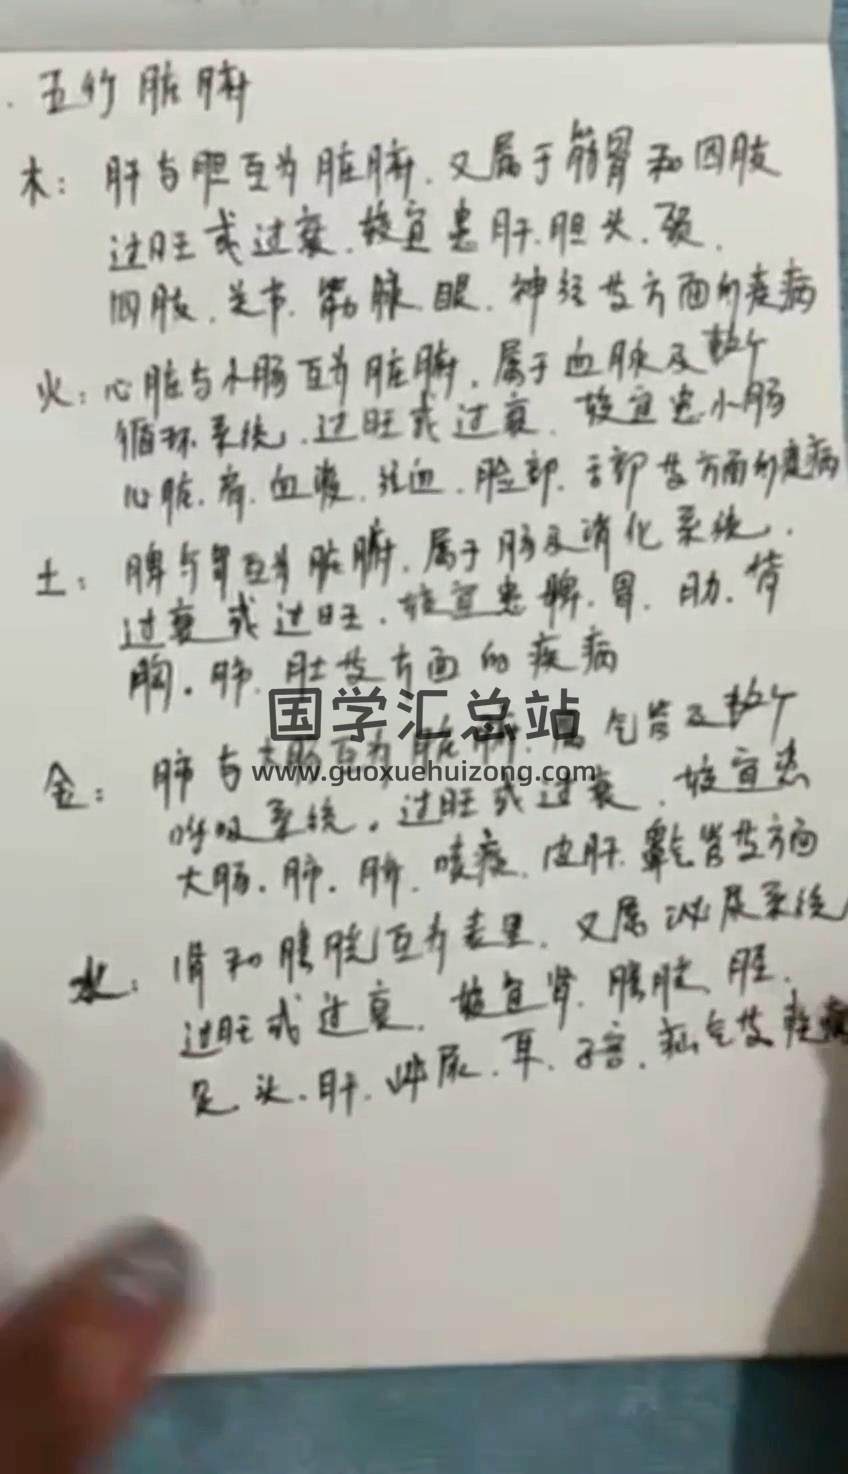 五行脏腑
木：肝与胆互为脏腑．又属于筋骨和四肢
过旺或过衰．较宜患肝．胆头．颈．
四肢．关节．筋脉眼．神经等方面的疾病
火：心脏与小肠互为脏腑．属于血脉及整个
循环系统．过旺或过衰．较宜患小肠
心脏．肩．血液．经血．脸部．舌部等方面的疾病
土：脾与胃互为脏腑．属于肠及消化系统．
过衰或过旺．较宜患脾．胃．肋．背
胸．肺．肚等方面的疾病
国学汇总站
金：肺与大肠互为脏腑．属气管及整个
www.guoxuehuizong.com
呼吸系统．过旺或过衰．较宜患
大肠．肺．咳痰．皮肝．气管等方面
水：肾和膀胱互为表里．又属泌尿系统
过旺或过衰．较宜肾．膀胱．胫．
足．头．肝．泌尿．耳．子宫．疝气等疾病